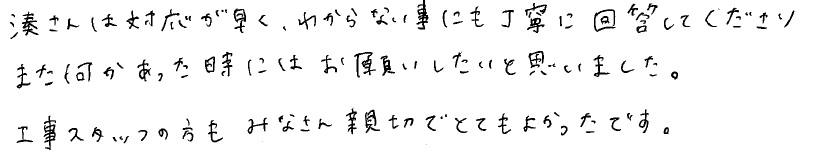 湊さんは対応が早く、わからない事にも丁寧に回答してくださり
また何かあった時にはお願いしたいと思いました。
工事スタッフの方もみなさん親切でとてもよかったです。